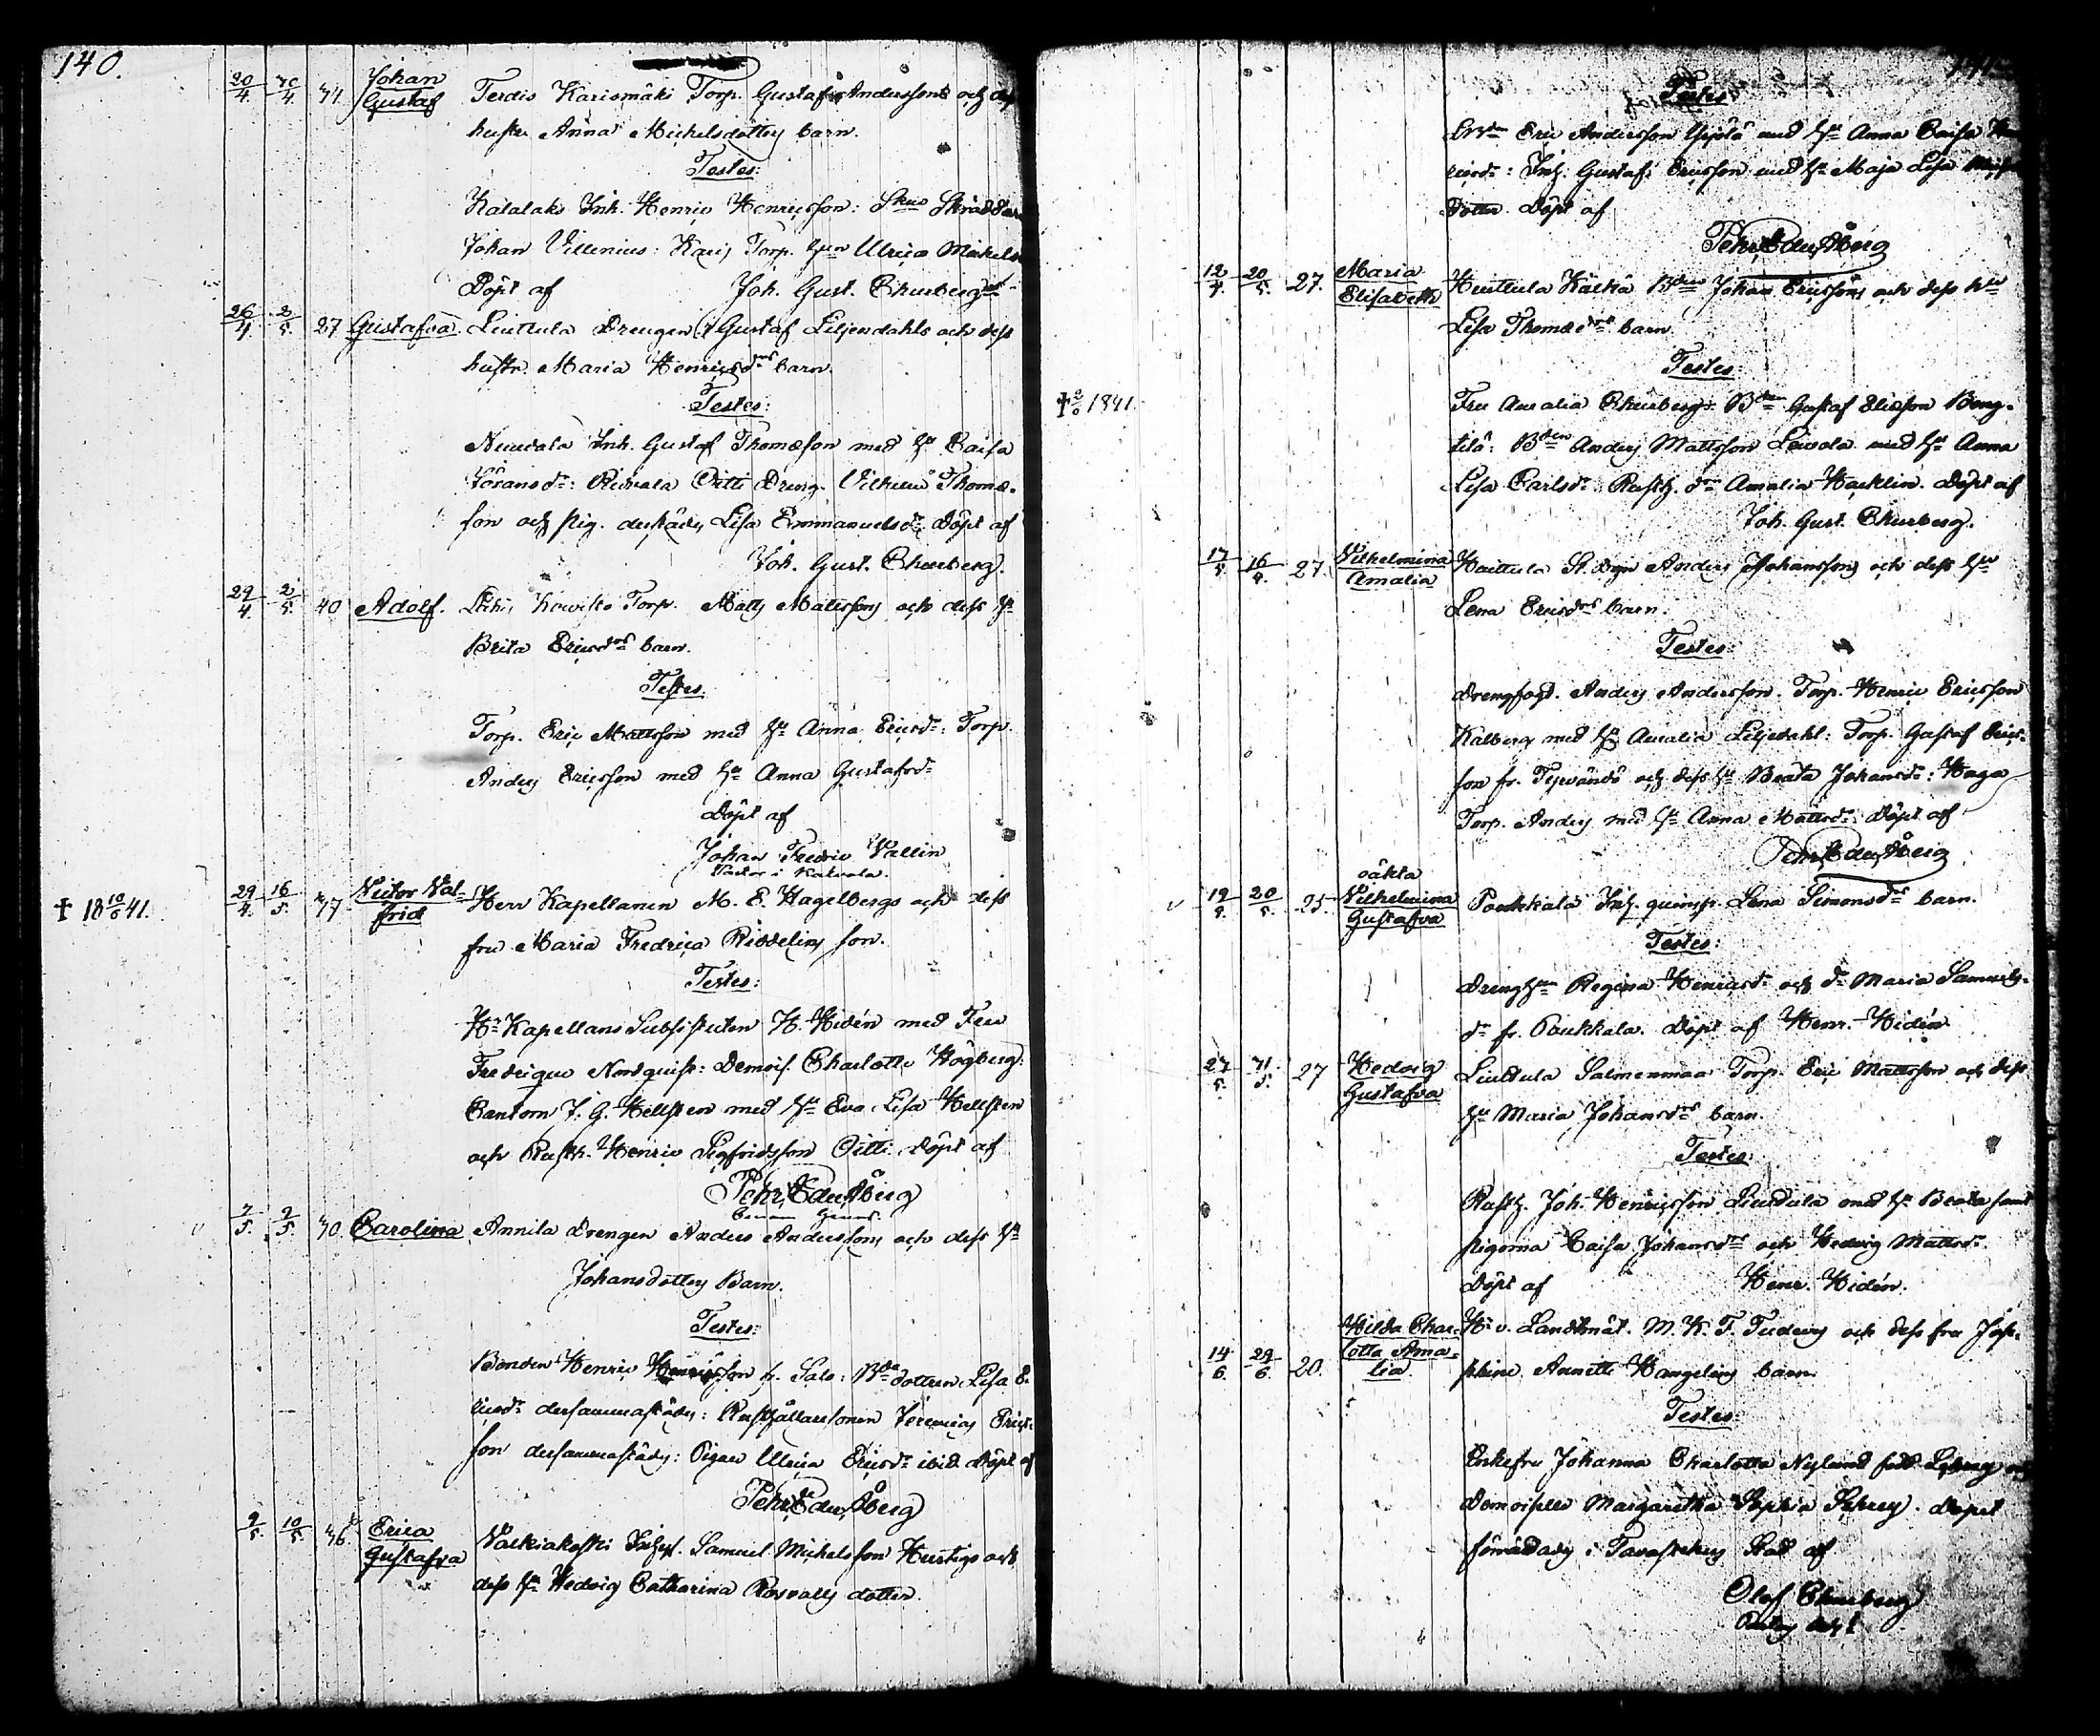 140.
20/4. 30/4. 31. Johan Gustaf Terdis Karismäki Torp. Gustaf Anderssons och
hustru Anna Michelsdotters barn.
Testes:
Kalalaks Inh. Henric Henricsson: Skräddare
Johan Villenius: Karis Torp. Ulrica Michels
Döpt af Joh. Gust. Churberg
26/4. 2/5. 27 Gustafva Liuttula Drengen Gustaf Liljendahls och dess
hustr. Maria Henricsdrs barn.
Testes:
Inh. Gustaf Thomæson med Hu Caisa
Göransdr: Ritvala Oitti Dreng. Vilhelm Thomæ-
son och pig. derstäds Lisa Emmanuelsdr. Döpt af
Joh. Gust. Churberg.
29/4. 2/5. 40 Adolf. Torp. Matts Mattssons och dess Hu
Brita Ericsdrs barn.
Testes.
Torp. Eric Mattsson med Hu Anna Ericsdr: Torp.
Anders Ericsson med Hu Anna Gustafsdr
Döpt af
Johan Fredric Vallin
Pastor i Kalvola.
† 18 10/6 41. 29/4. 16/5. 37 Victor Val-
frid Herr Kapellanen M. E. Hagelbergs och dess
fru Maria Fredrica Riddelins son.
Testes:
Hr Kapellans Substituten H. Hidén med Fru
Frederique Nordquist: Demois. Charlotte Högberg:
Cantorn J. G. Hellsten med Hu Eva Lisa Hellsten
och Rusth. Henric Sigfridsson Oitti. Döpt af
Pehr Edu. Åberg
7/5. 9/5. 30. Carolina Annila Drengen Anders Anderssons och dess Hu
Johansdotters Barn.
Testes:
Bonden Henric Henricsson fr. Salo: Bdedottren Lisa E-
ricsdr dersammastäds: Rusthållaresonen Jeremias Erics-
son dersammastäds: Pigan Ulrica Ericsdr ibid. Döpt af
Pehr Edu. Åberg
9/5. 10/5. 36. Erica
Gustafva Valkiakoski Inhys. Samuel Michelsson Hurtigs och
dess Hu Hedvig Catharina Rosvalls dotter.
Testes
Eric Andersson med Hu Anna Caisa
ricsdr: Inh. Gustaf Ericsson med Hu Maja Lisa
dotter. Döpt af
Pehr Edu. Åberg
12/4. 20/5. 27. Maria
Elisabeth Huittula Bdens Johan Ericssons och dess hus
Lisa Thomædrs barn.
Testes:
† 1841. Fru Amalia Churberg: Bden Gustaf Eliæson Beng-
tilä: Bden Anders Mattsson Leivola med Hu Anna
Lisa Carlsdr. Rusth. dr Amalia Hacklin. Döpt af
Joh. Gust. Churberg.
17/5. 16/6. 27. Vilhelmina
Amalia Huittula Anders Johanssons och dess Hus
Lena Ericsdrs barn.
Testes:
Drengfogd. Anders Andersson. Torp. Henric Ericsson
Kalberg med Hu Amalia Liljedahl: Torp. Gustaf Erics-
son fr. och dess Hu Beata Johansdr: Haga
Torp. Anders med Hu Anna Mattsdr: Döpt af
Pehr Edu. Åberg
19/5. 20/5. 25. oäkta
Vilhelmina
Gustafva Paukkala Inh. qvinsp. Lena Simonsdrs barn.
Testes:
Drenghun Regina Henricsdr och dr Maria Samuels-
dr fr. Paukkala. Döpt af Henr. Hidén
27/5. 31/5. 27 Hedvig
Gustafva Liuttula Salmenmaa Torp. Eric Mattsson och dess
Hu Maria Johansdrs barn.
Testes:
Rusth. Joh. Henricsson Liuttula med Hu Beata samt
pigorna Caisa Johansdr och Hedvig Mattsdr.
Döpt af Henr. Hidén.
14/6. 29/6. 20. Hilda Char-
lotta Ama-
lia. Hr v. Landtmät. M. W. T. Tudeers och dess fru Jose-
phine Annette Wangelins barn.
Testes:
Enkefru Johanna Charlotta Nylund född
Demoiselle Margaretha Sophia . Döpt
i Tavastehus Stad af
Olof Churberg